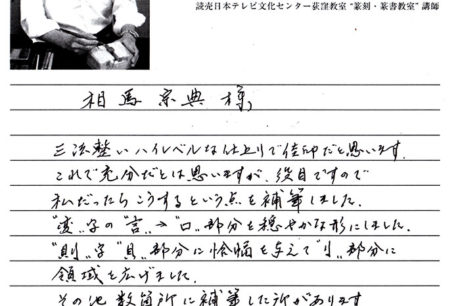 読売日本テレビ文化センター荻窪教室“篆刻・篆書教室”講師
相馬宗典様
三法整いハイレベルな仕上りで佳印だと思います。
これで充分だとは思いますが、役目ですので
私だったらこうするという点を補筆しました。
“変„字の“言„→“口„部分を穏やかな形にしました。
“則„字“貝„部分に恰幅を与えて“刂„部分に
領域を広げました。
その他数箇所に補筆した所があります